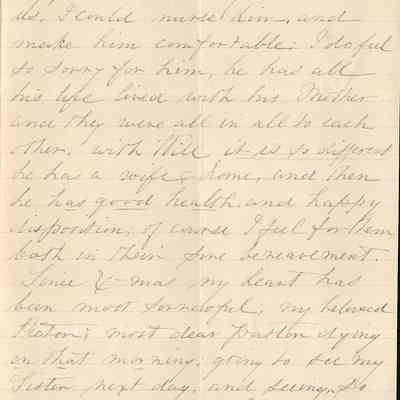 us, I could nurse him, and
make him comfortable: I do feel
so sorry for him, he has all
his life lived with his Mother
and they were all in all to each
other. with Will it is so different
he has a wife & home, and then
he has good health, and happy
disposition; of course I feel for them
both in their sore bereavement.
Since X-mas my heart has
been most sorrowful, my beloved
most dear Pastor dying
on that morning, going to see my
Sister next day, and seeing, so